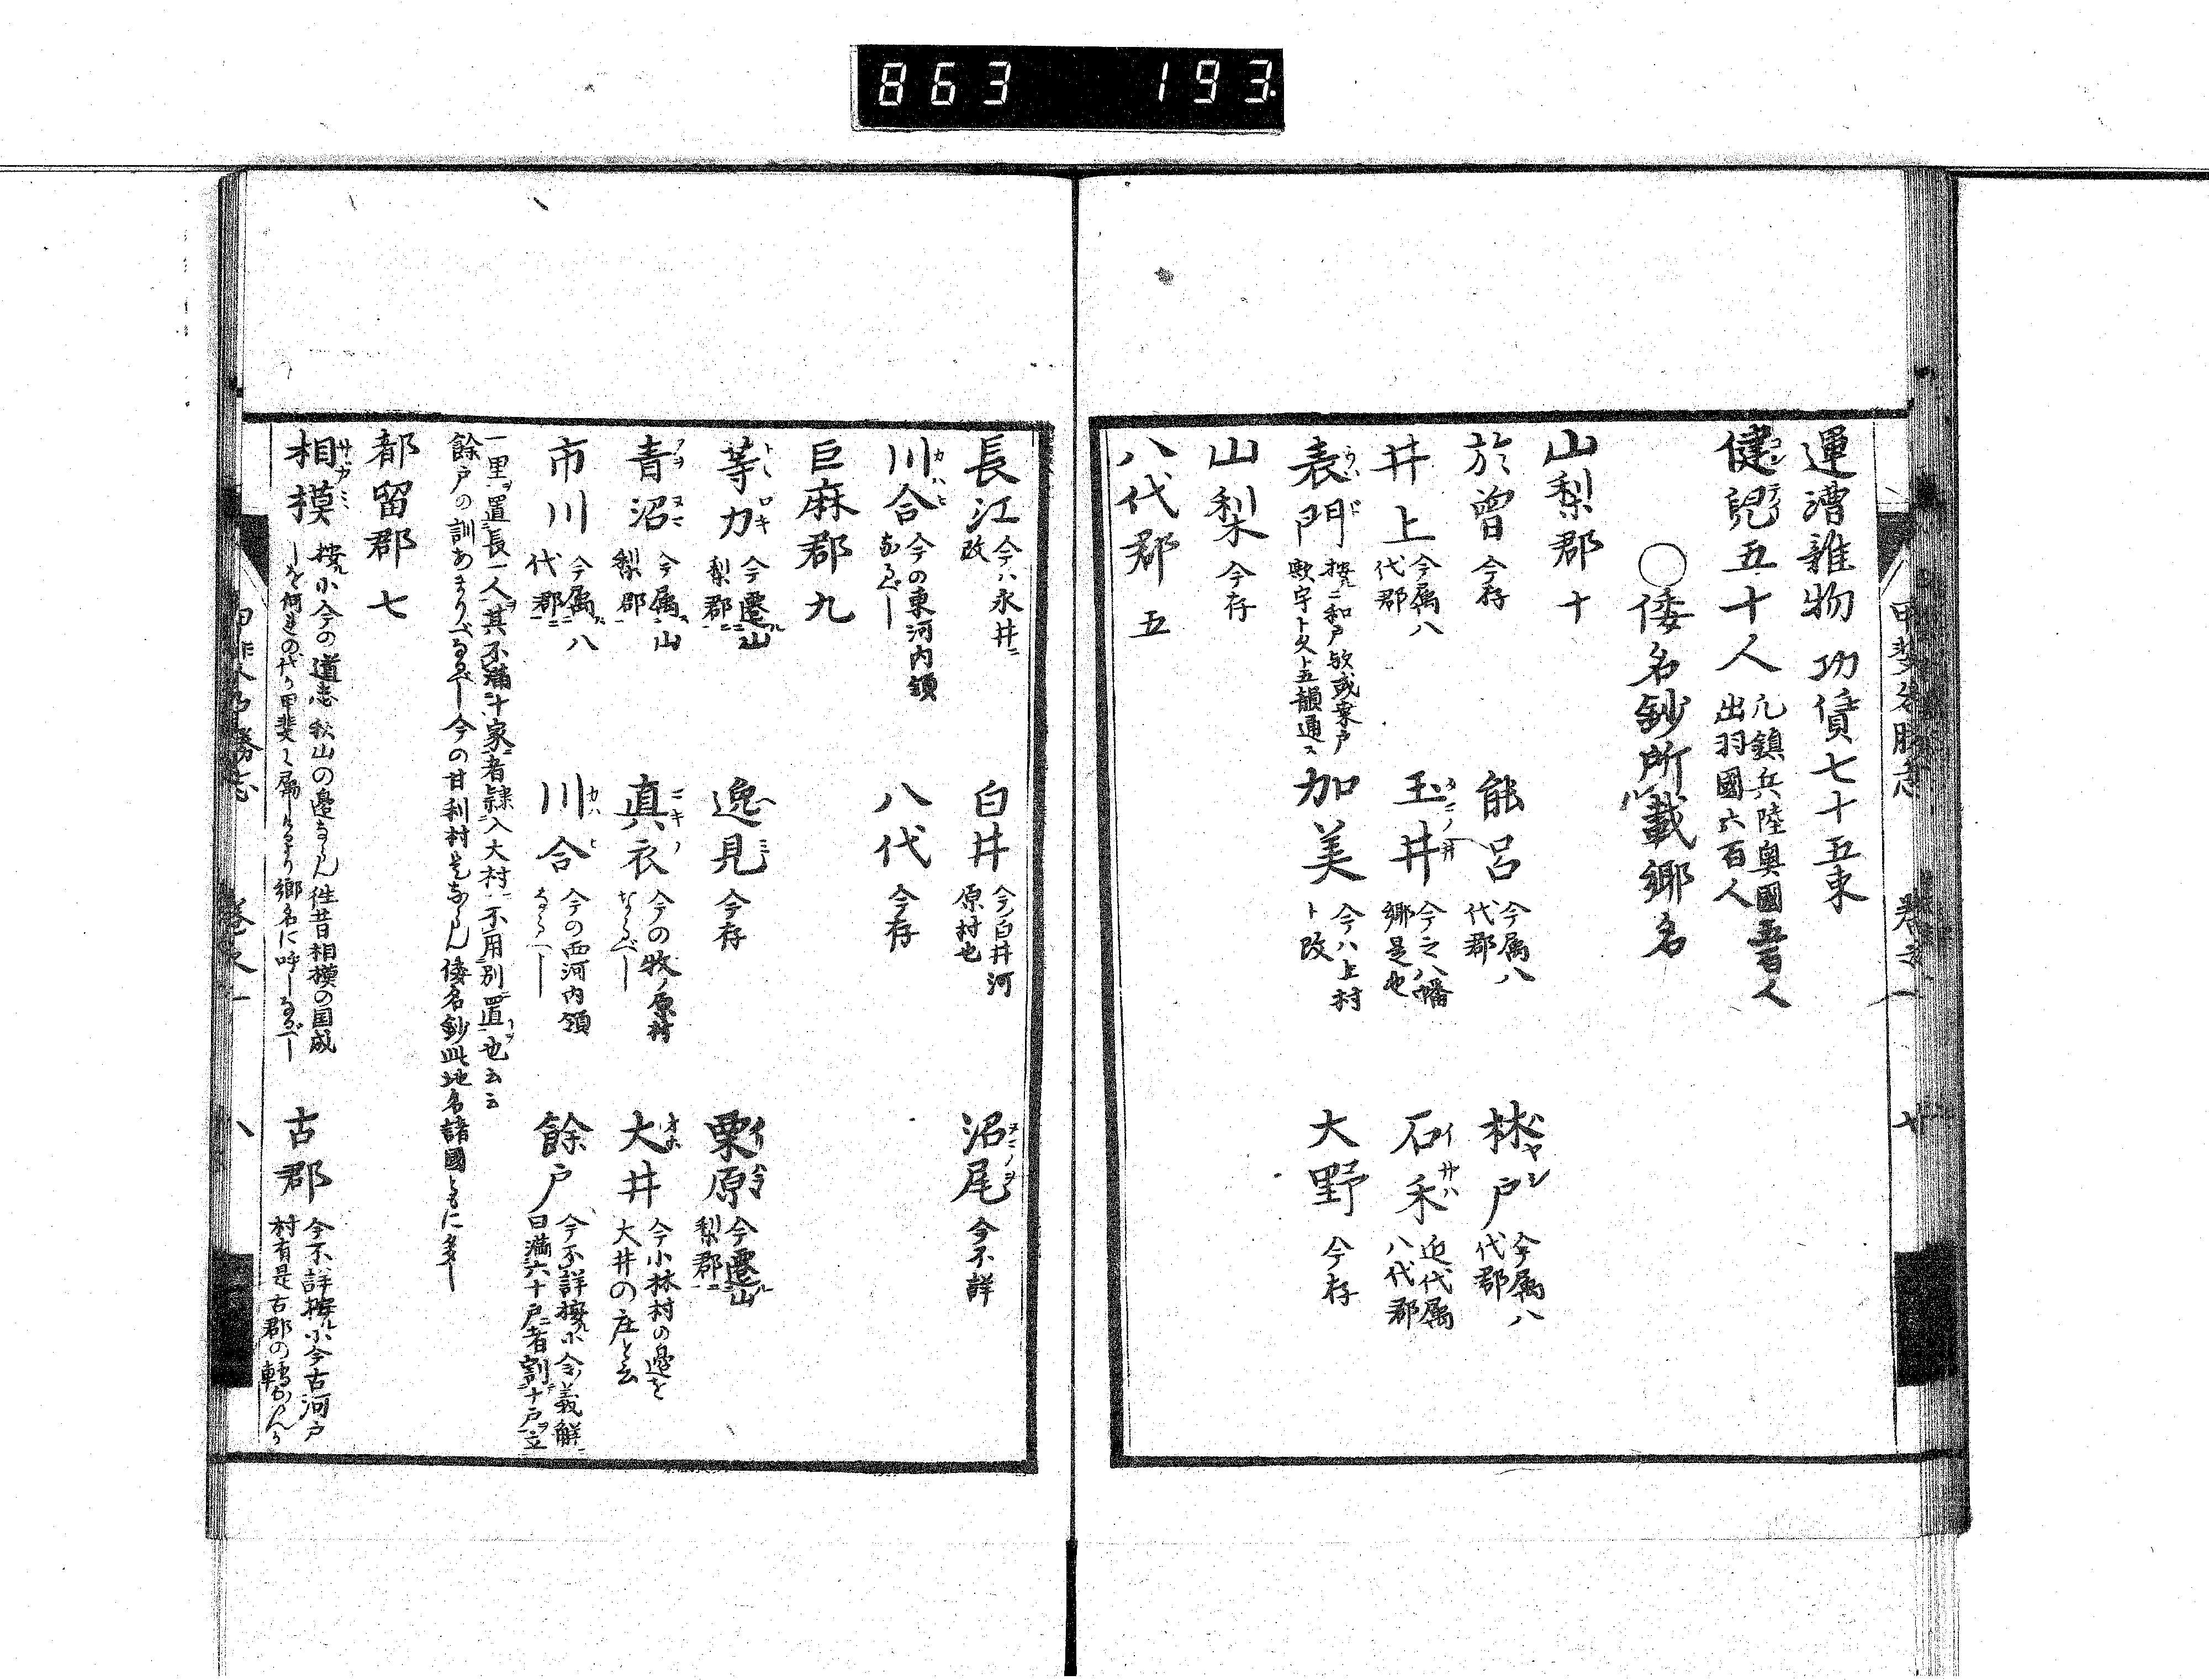 863 193
運漕雑物 功賃七十五束
健児五十人 凢鎮兵陸奥國五百人
出羽國六百人
〇倭名鈔所載郷名
山梨郡 十
於曽 今存 能呂 今属八代郡 林戸 ハヤシ 今属八代郡
井上 今属八代郡 玉井 タマノ井 今之八幡郷是也 石禾 イサハ 近代属八代郡
表門 ウハト 按ルニ和戸欤或
加美 今ハ上村ト改 大野 今存
山梨 今存
八代郡 五
長江 今ハ永井ニ改 白井 今ノ白井河原村也 沼尾 ヌマノヲ 今不詳
川合 カハヒ 今の東河内領なるべし 八代 今存
巨麻郡 九
等力 トヽロキ 今遷山梨郡ニ 逸見 ヘミ 今存 栗原 今遷山梨郡ニ
青沼 アヲヌマ 今属山梨郡ニ 真衣 マキノ 今の牧ノ原村なるべし 大井 オホ 今小林村の邉を大井の庄と云
市川 今属八代郡ニ 川合 カハヒ 今の西河内領なるべし 餘戸 今不詳按ルニ令義解ニ曰満六十戸者割十戸ヲ立
一里ヲ置長一人ヲ其不満十家者隷入大村ニ不用別置ヲ也云云
餘戸の訓あまりべなるべし今の甘利村是ならん倭名鈔此地名諸國ともに多し
都留郡 七
相模 サカミ 按ルに今の道志秋山の邉ならん徃昔相模の国
古郡 今不詳按ルに今古河戸村有是古郡の轉ならんか
甲斐名勝志 巻之一 七
甲斐名勝志 巻之一 八